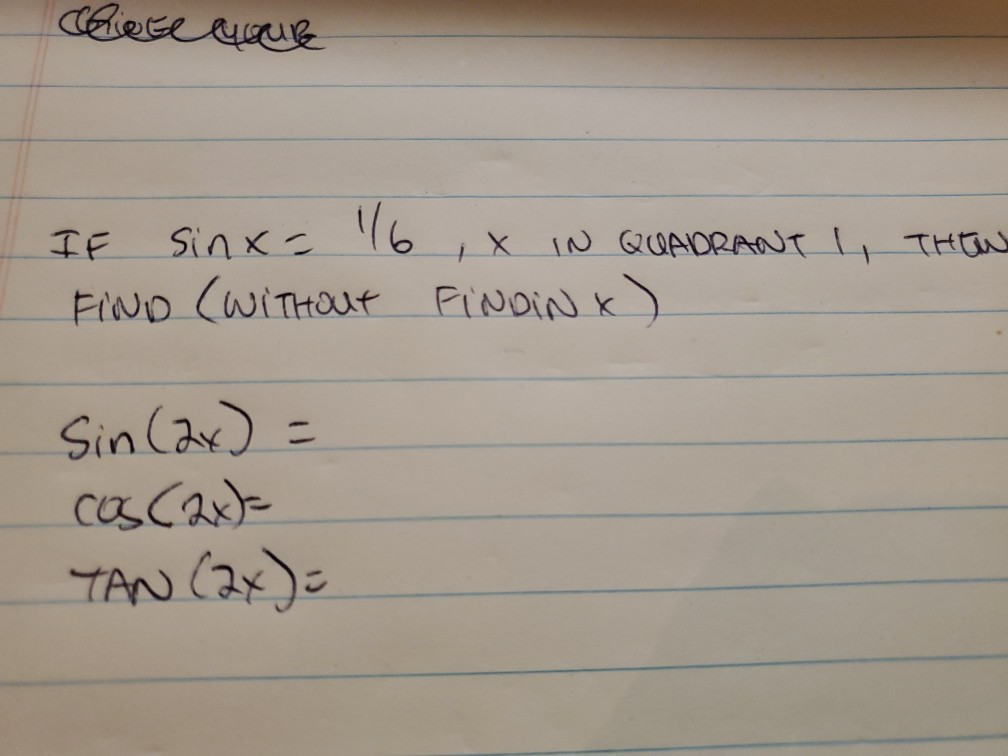 IF sinx = 1/6 , x IN QUADRANT 1, THEN
FIND (WITHOUT FINDIN x)
Sin(2x) =
cos(2x)=
TAN (2x)=